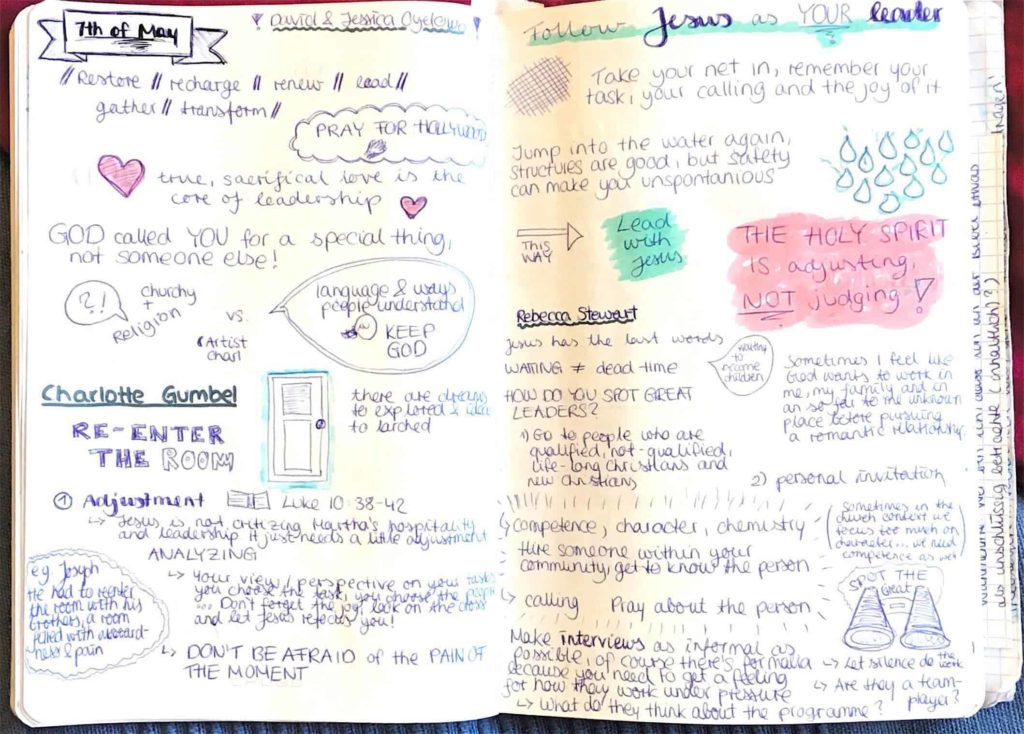 7th of May
David & Jessica Oyelowo
// Restore // recharge // renew // lead //
gather // transform //
PRAY FOR HOLLYWOOD
true, sacrifical love is the
core of leadership
GOD called YOU for a special thing,
not someone else!
?!
churchy
+
Religion
vs.
(Artist
language & ways
people understand
KEEP
GOD
Charlotte Gumbel
RE-ENTER
THE ROOM
there are dreams
to explored &
to
① Adjustment
Luke 10:38-42
↳ Jesus is not critizing Martha's hospitality
and leadership it just needs a little adjustment
ANALYZING
↳ Your view / perspective on your tasks
you choose the task, you choose the people
... Don't forget the joy, look on the
and let Jesus you!
eg Joseph
He had to reenter
the room with his
brothers, a room
filled with
& pain
↳ DON'T BE AFRAID of the PAIN OF
THE MOMENT
Follow Jesus as YOUR leader
Take your net in, remember your
task, your calling and the joy of it
Jump into the water again,
structures are good, but safety
can make your unspontanious
THIS
WAY
Lead
with
Jesus
THE HOLY SPIRIT
IS adjusting,
NOT judging!
Rebecca Stewart
Jesus has the last words
WAITING ≠ dead time
waiting
to
become
children
HOW DO YOU SPOT GREAT
LEADERS?
1) Go to people who are
qualified, not-qualified,
life-long Christians and
new Christians
Sometimes I feel like
God wants to work in
me, my family and in
an so far to me unknown
place before pursuing
a romantic relationship
2) personal invitation
↳ competence, character, chemistry
Hire someone within your
community, get to know the person
Sometimes in the
church context we
focus too much on
character... we need
competence as well
↳ calling Pray about the person
SPOT THE
Great
Make interviews as informal as
possible, of course there's formalia
because you need to get a feeling
for how they work under pressure
↳ What do they think about the programme?
↳ Let silence do the work
↳ Are they a team-
player?